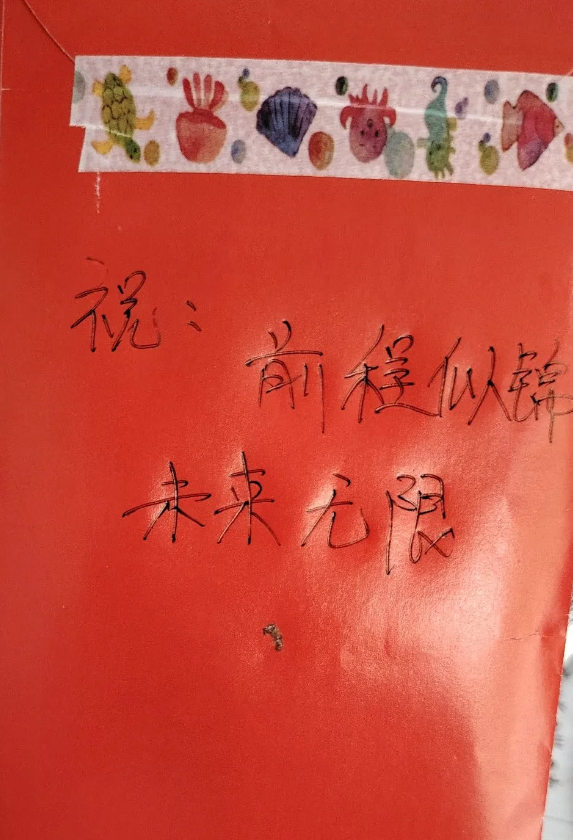 祝：
前程似锦
未来无限